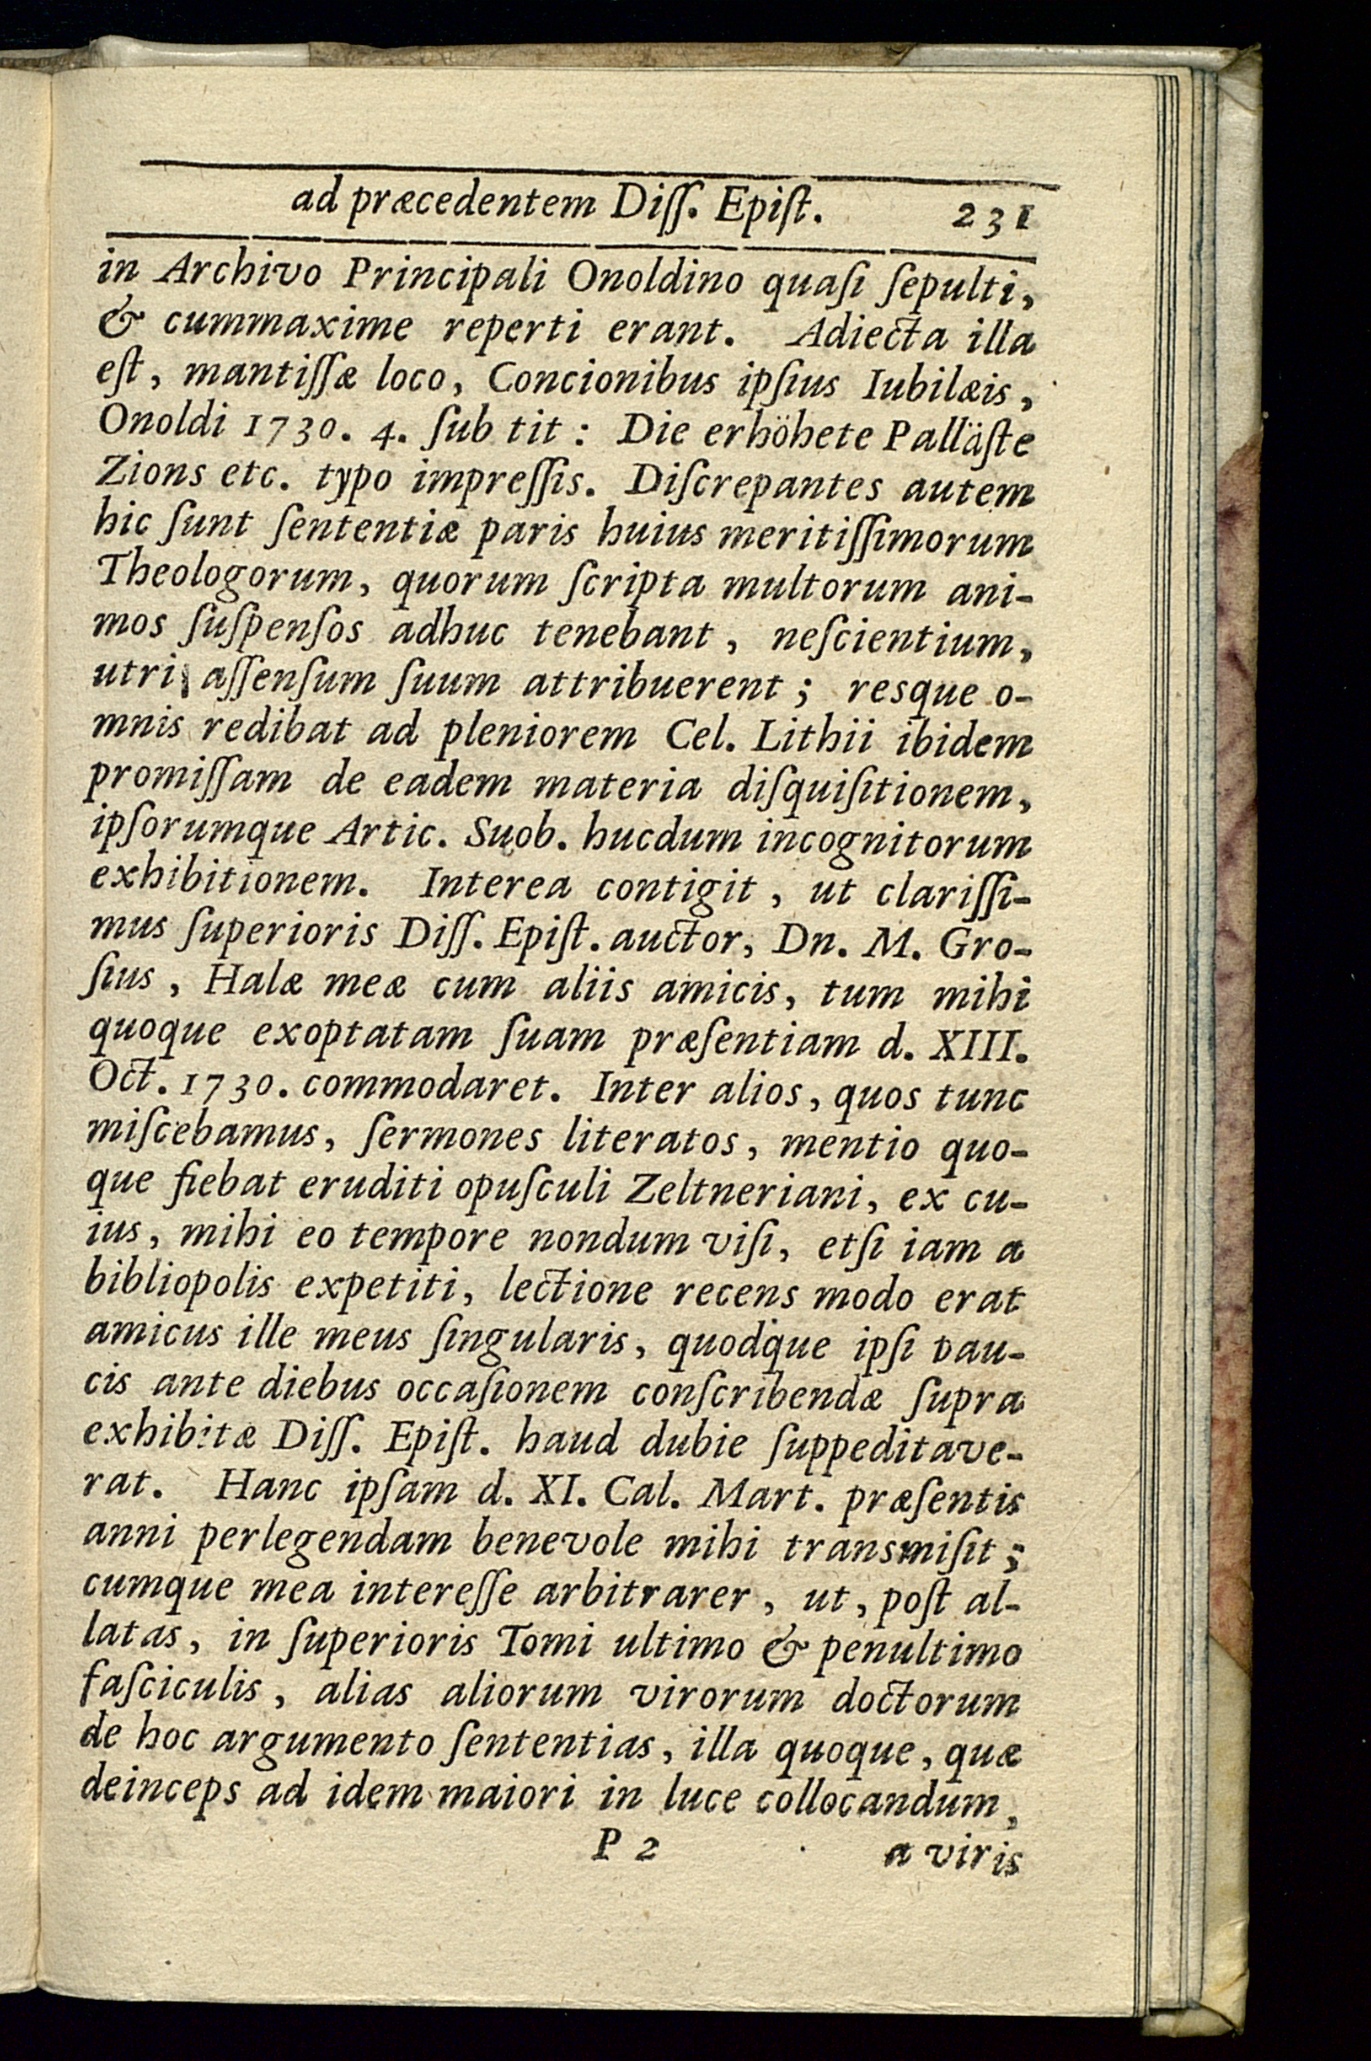 ad præcedentem Diſſ. Epiſt. 231
in Archivo Principali Onoldino quaſi ſepulti,
& cummaxime reperti erant. Adiecta illa
eſt, mantiſſæ loco, Concionibus ipſius Iubilæis,
Onoldi 1730. 4. ſub tit: Die erhöhete Palläſte
Zions etc. typo impreſſis. Diſcrepantes autem
hic ſunt ſententiæ paris huius meritiſſimorum
Theologorum, quorum ſcripta multorum ani-
mos ſuſpenſos adhuc tenebant, neſcientium,
utri aſſenſum ſuum attribuerent; resque o-
mnis redibat ad pleniorem Cel. Lithii ibidem
promiſſam de eadem materia diſquiſitionem,
ipſorumque Artic. Suob. hucdum incognitorum
exhibitionem. Interea contigit, ut clariſſi-
mus ſuperioris Diſſ. Epiſt. auctor, Dn. M. Gro-
ſius, Halæ meæ cum aliis amicis, tum mihi
quoque exoptatam ſuam præſentiam d. XIII.
Oct. 1730. commodaret. Inter alios, quos tunc
miſcebamus, ſermones literatos, mentio quo-
que fiebat eruditi opuſculi Zeltneriani, ex cu-
ius, mihi eo tempore nondum viſi, etſi iam a
bibliopolis expetiti, lectione recens modo erat
amicus ille meus ſingularis, quodque ipſi pau-
cis ante diebus occaſionem conſcribendæ ſupra
exhibitæ Diſſ. Epiſt. haud dubie ſuppeditave-
rat. Hanc ipſam d. XI. Cal. Mart. præſentis
anni perlegendam benevole mihi transmiſit;
cumque mea intereſſe arbitrarer, ut, poſt al-
latas, in ſuperioris Tomi ultimo & penultimo
faſciculis, alias aliorum virorum doctorum
de hoc argumento ſententias, illa quoque, quæ
deinceps ad idem maiori in luce collocandum,
P 2 a viris